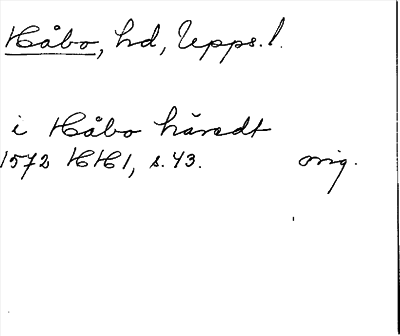 Håbo, hd, Upps. l.
i Håbo häredt
1572 HH 1, s. 43. orig.